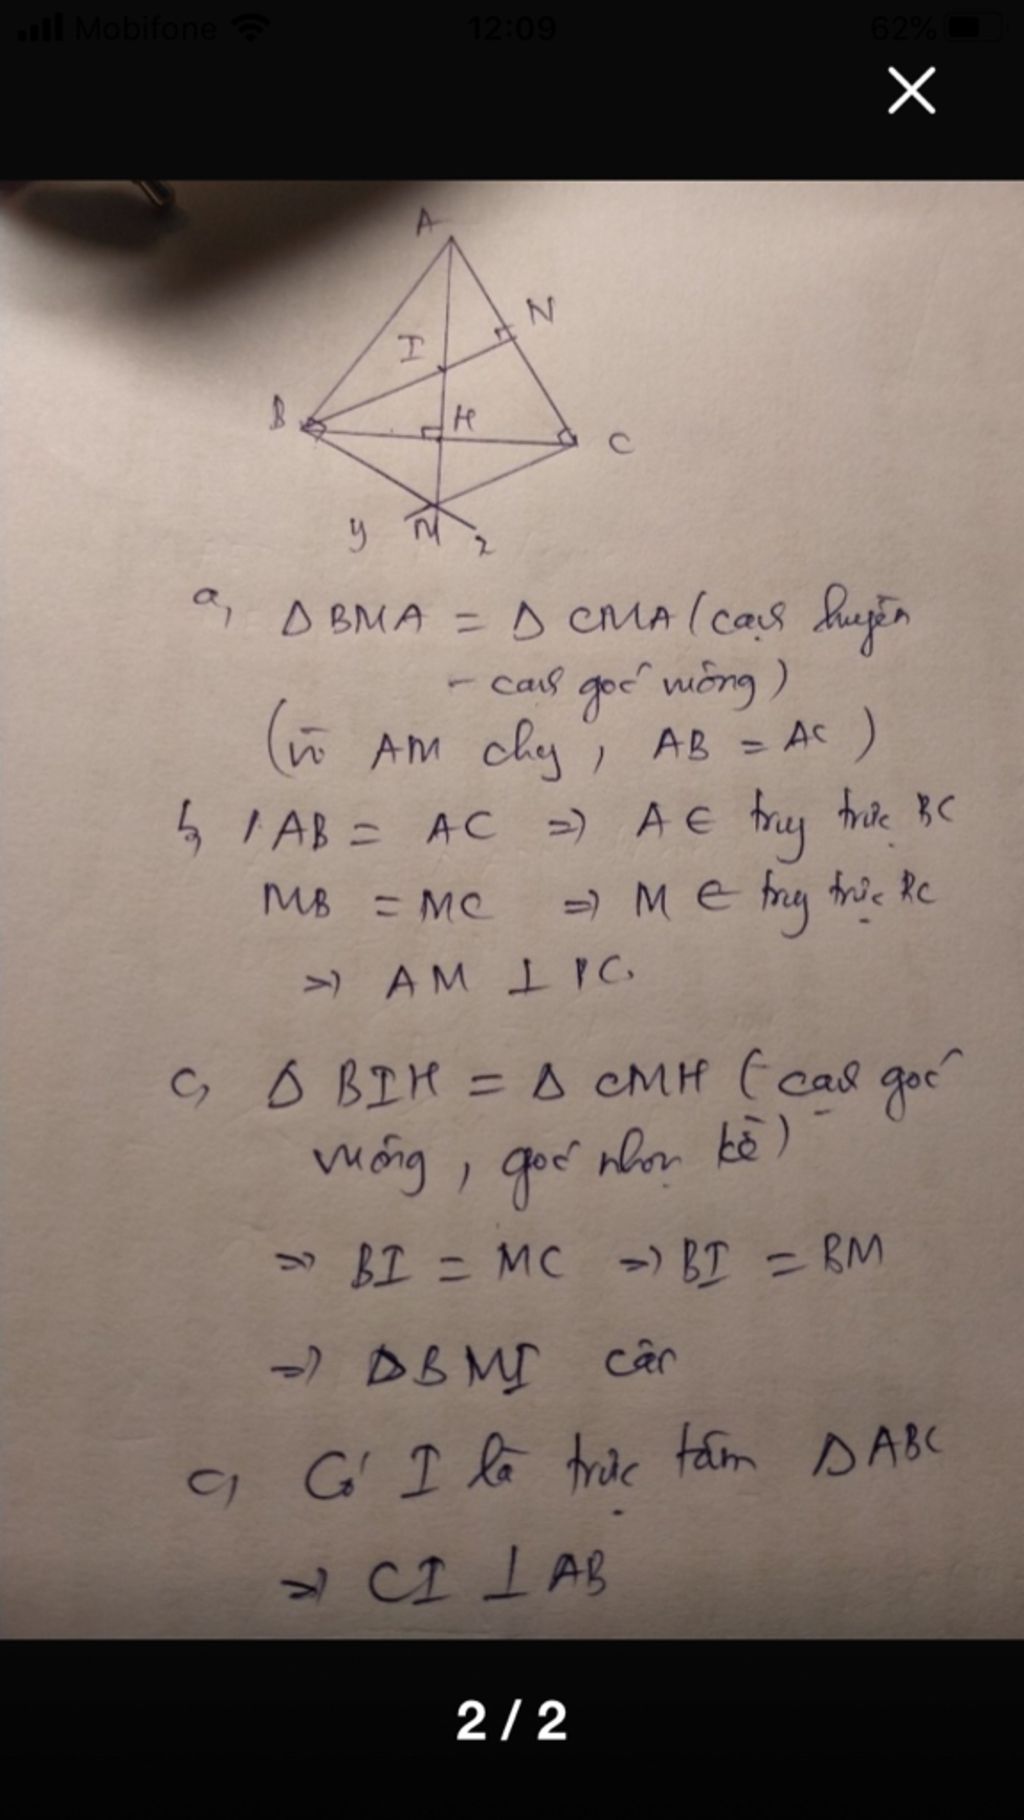 Mobifone 12:09 62%
A
N
I
B
H
C
y M
a, Δ BMA = Δ CMA (cạnh huyền
- cạnh góc vuông)
(vì AM chg, AB = AC)
b, AB = AC => A ∈ trg trực BC
MB = MC => M ∈ trg trực BC
=> AM ⊥ BC.
c, Δ BIH = Δ CMH (cạnh góc
vuông, góc nhọn kề)
=> BI = MC => BI = BM
=> Δ BMI cân
c, Có I là trực tâm Δ ABC
=> CI ⊥ AB
2 / 2